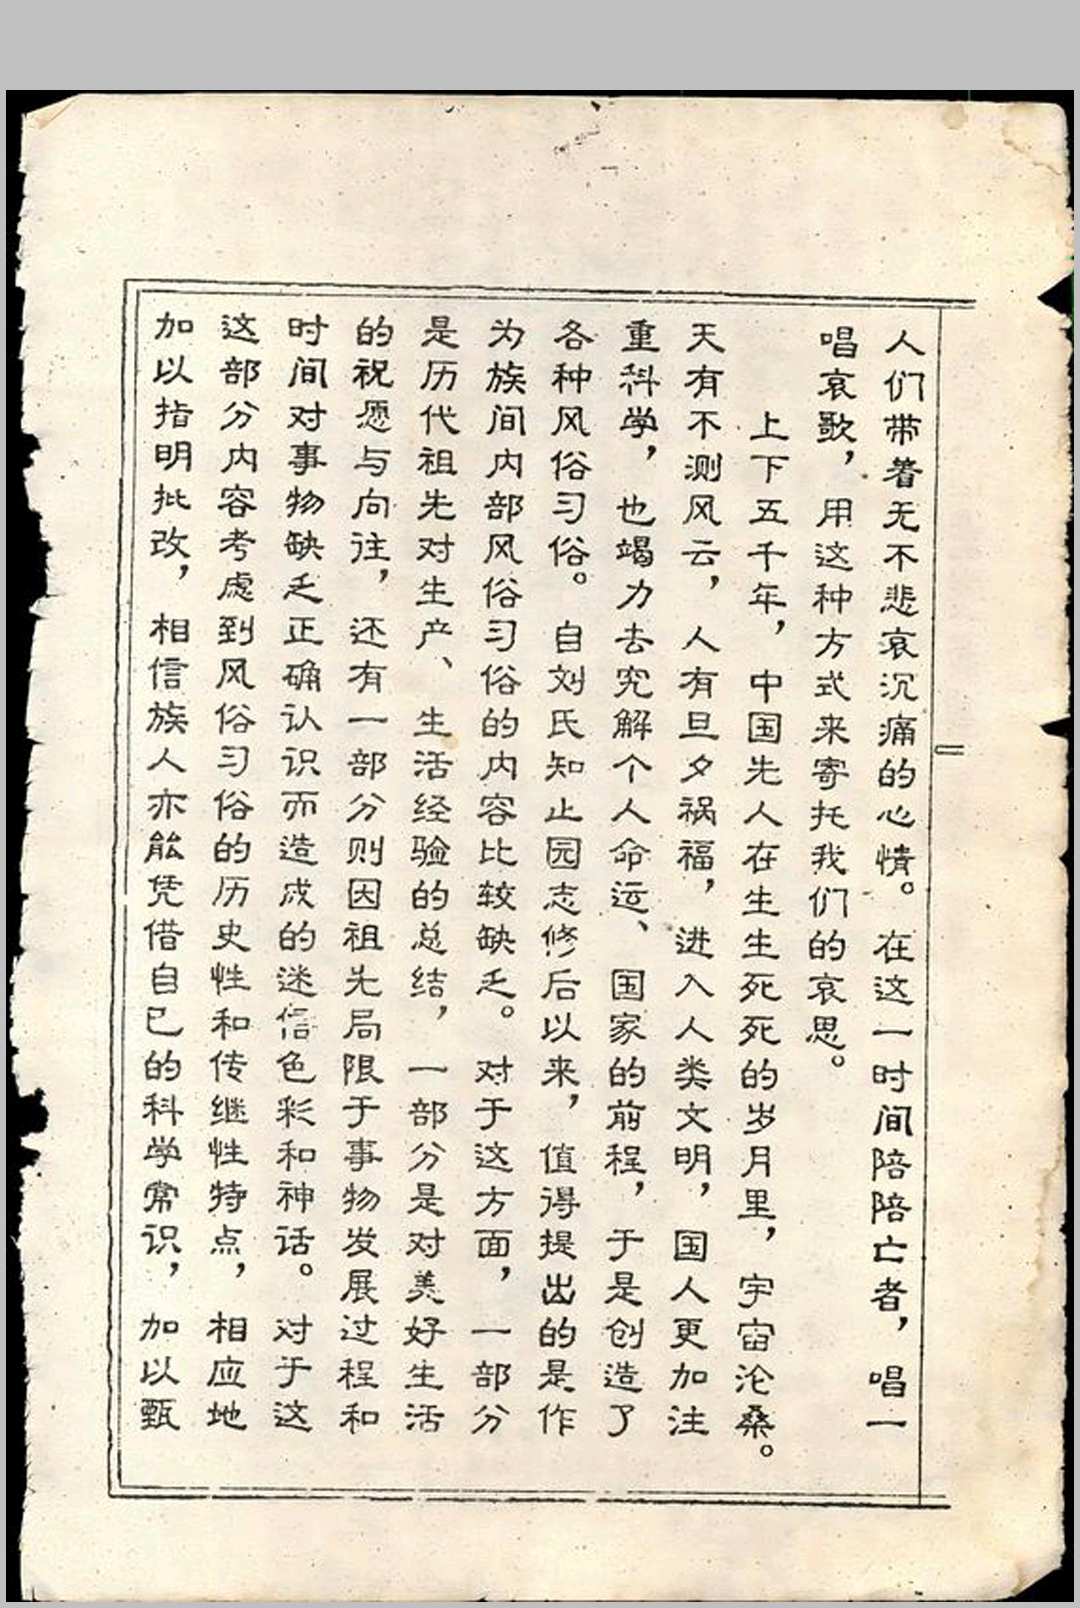 人们带着无不悲哀沉痛的心情。在这一时间陪陪亡者，唱一
唱哀歌，用这种方式来寄托我们的哀思。
上下五千年，中国先人在生生死死的岁月里，宇宙沦桑。
天有不测风云，人有旦夕祸福，进入人类文明，国人更加注
重科学，也竭力去究解个人命运、国家的前程，于是创造了
各种风俗习俗。自刘氏知止园志修后以来，值得提出的是作
为族间内部风俗习俗的内容比较缺乏。对于这方面，一部分
是历代祖先对生产、生活经验的总结，一部分是对美好生活
的祝愿与向往，还有一部分则因祖先局限于事物发展过程和
时间对事物缺乏正确认识而造成的迷信色彩和神话。对于这
这部分内容考虑到风俗习俗的历史性和传继性特点，相应地
加以指明批改，相信族人亦能凭借自己的科学常识，加以甄